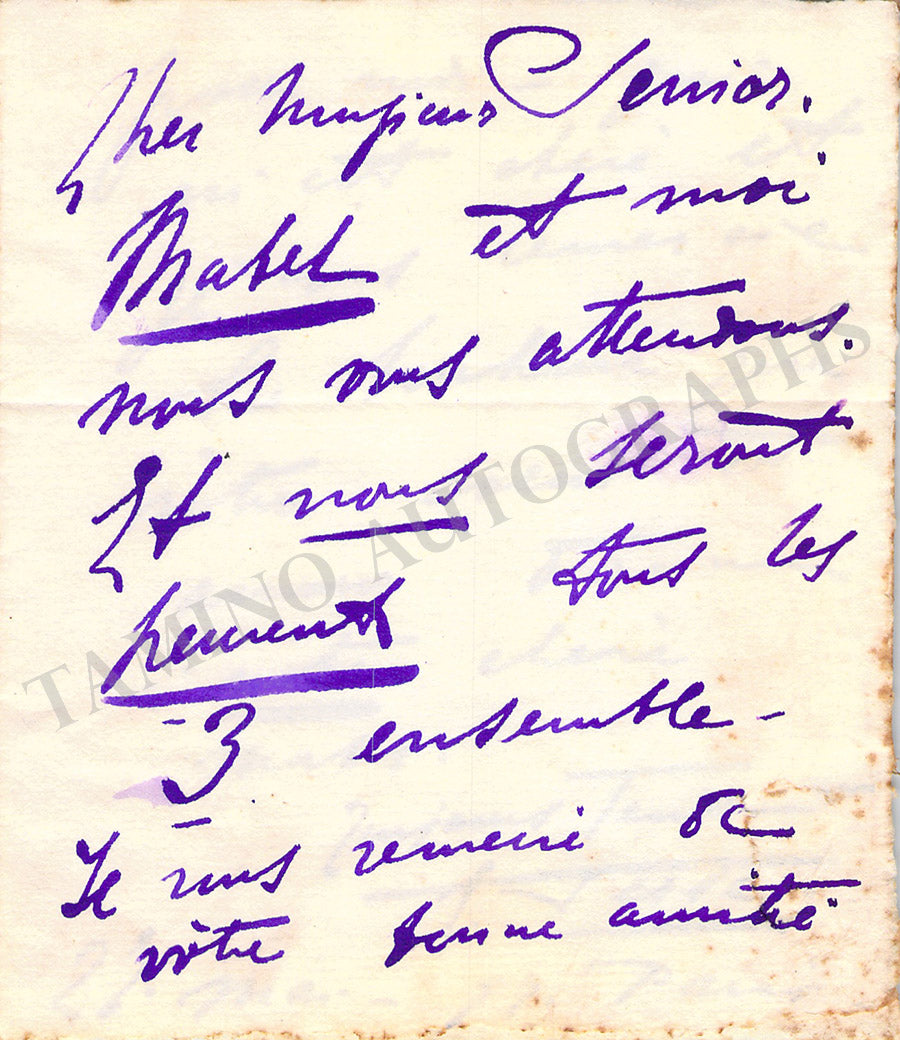 Cher Monsieur Senior.
Mabel et moi
nous vous attendons.
Et nous seront
tous les
- 3 ensemble -
Je vous remercie de
votre bonne amitié
TAMINO AUTOGRAPHS